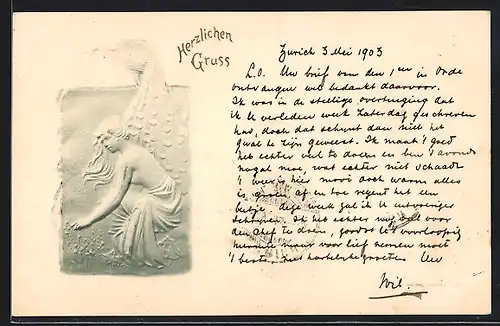 Herzlichen
Gruss
Zurich 3 Mei 1903
L.O. Uw brief van den 1en in orde
ontvangen wel bedankt daarvoor.
Ik was in de stellige overtuiging dat
ik U verleden week Zaterdag geschreven
had, doch dat schynt dan niet het
geval te zijn geweest. Ik maak 't goed
heb echter veel te doen en ben 's avonds
nogal moe, wat echter niet schaadt
't weer is hier mooi doch warm alles
is groen, af en toe regent het een
beetje, deze week zal ik U uitvoeriger
schrijven. Ik heb echter nog veel voor
den chef te doen, zoodat U voorloopig
hiermee maar voor lief nemen moet
't beste, met hartelyke groeten Uw
Wil.